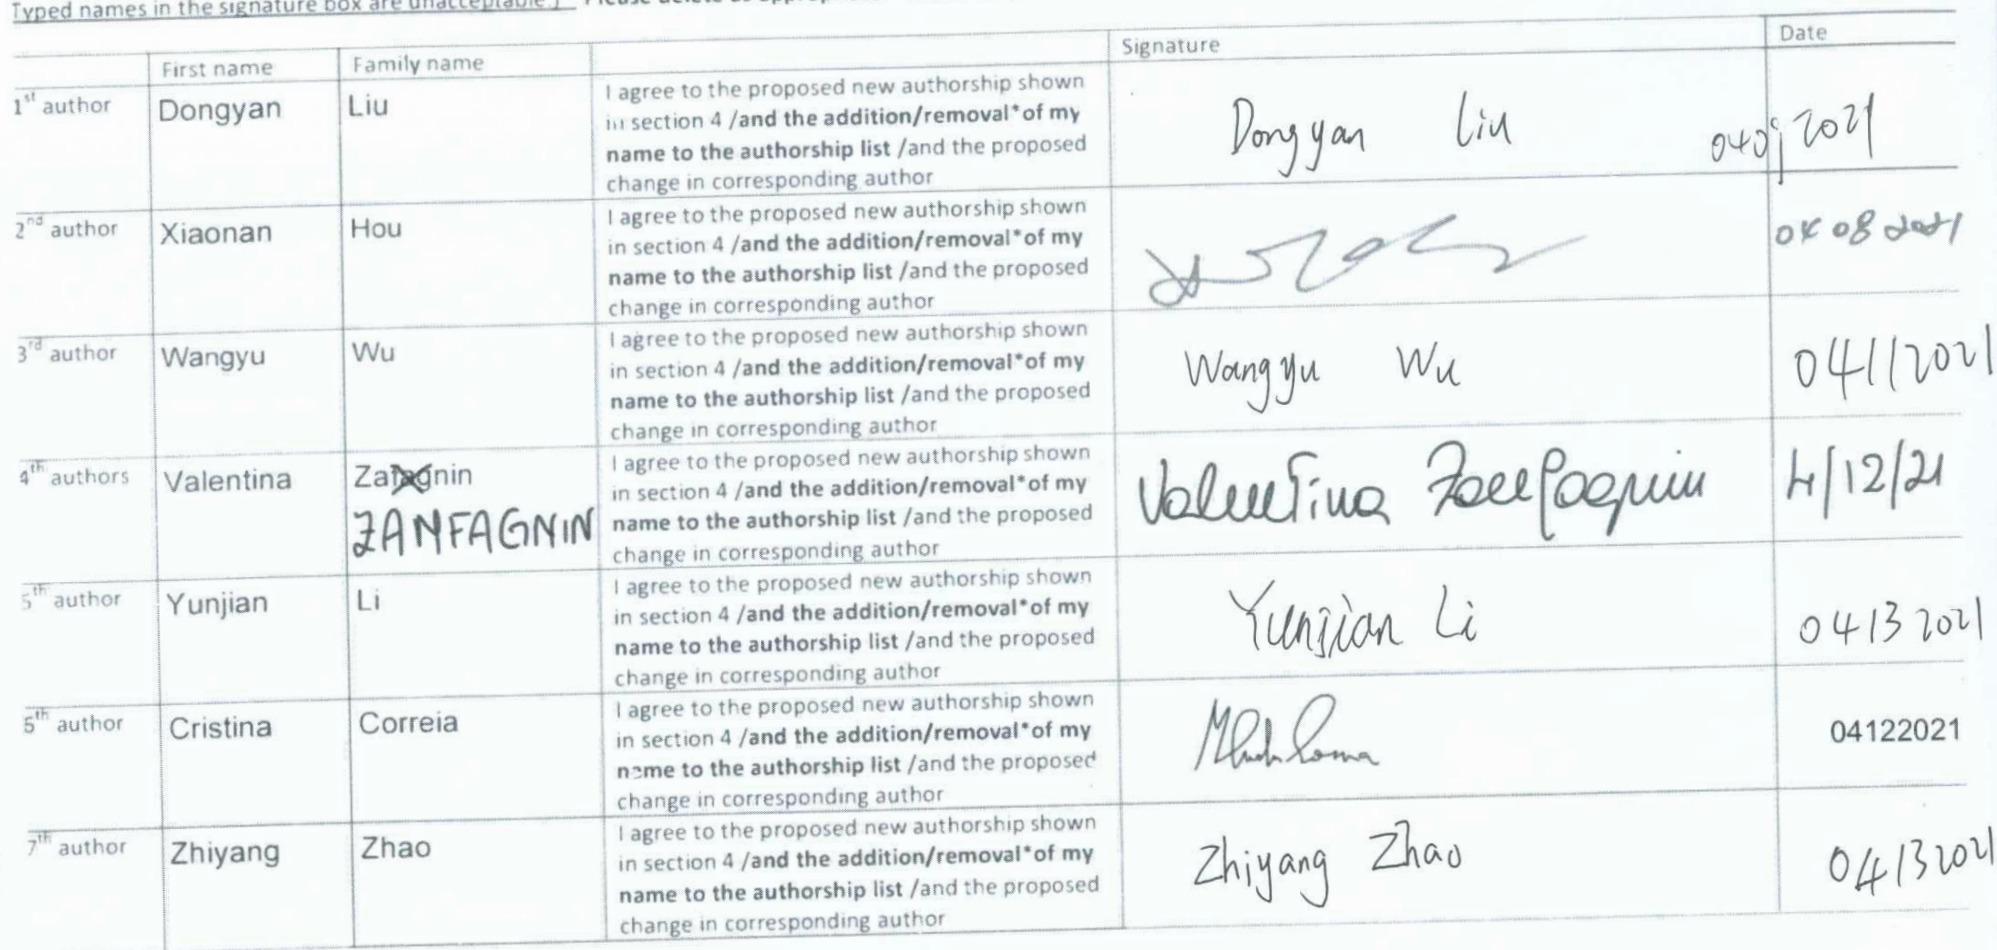 Typed names in the signature box are unacceptable.)
First name Family name Signature Date
1st author Dongyan Liu I agree to the proposed new authorship shown
in section 4 /and the addition/removal*of my
name to the authorship list /and the proposed
change in corresponding author
Dongyan Liu
2nd author Xiaonan Hou I agree to the proposed new authorship shown
in section 4 /and the addition/removal*of my
name to the authorship list /and the proposed
change in corresponding author
04 08 2021
3rd author Wangyu Wu I agree to the proposed new authorship shown
in section 4 /and the addition/removal*of my
name to the authorship list /and the proposed
change in corresponding author
Wangyu Wu 04112021
4th authors Valentina ZANFAGNIN I agree to the proposed new authorship shown
in section 4 /and the addition/removal*of my
name to the authorship list /and the proposed
change in corresponding author
Valentina Zanfagnin 4/12/21
5th author Yunjian Li I agree to the proposed new authorship shown
in section 4 /and the addition/removal*of my
name to the authorship list /and the proposed
change in corresponding author
Yunjian Li 04132021
5th author Cristina Correia I agree to the proposed new authorship shown
in section 4 /and the addition/removal*of my
name to the authorship list /and the proposed
change in corresponding author
04122021
7th author Zhiyang Zhao I agree to the proposed new authorship shown
in section 4 /and the addition/removal*of my
name to the authorship list /and the proposed
change in corresponding author
Zhiyang Zhao 04132021